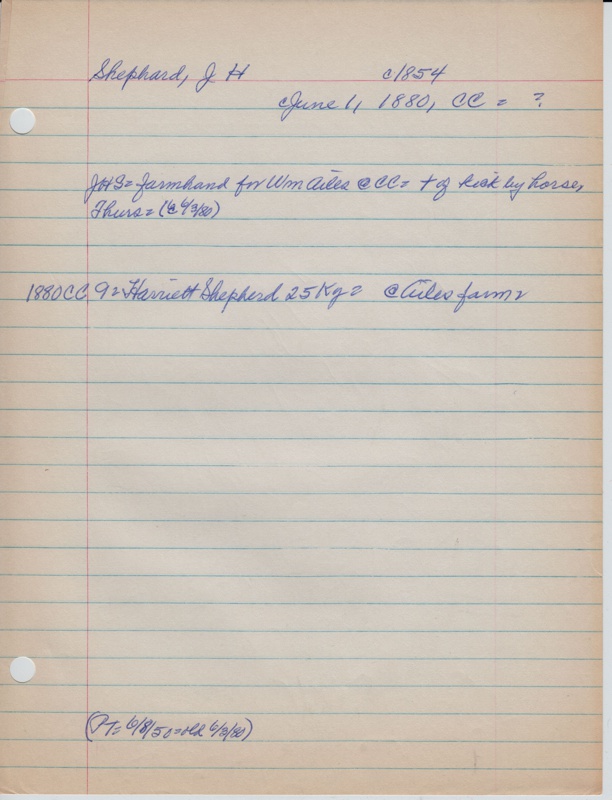 Shephard, J H c1854
June 1, 1880, CC = ?
JHS= farmhand for Wm Ailes @ CC= + of kick by horse,
Thurs= (@ 6/3/80)
1880CC 9= Harriett Shepherd 25 Ky= @ Ailes farm=
(PT= 6/8/50=old 6/3/80)